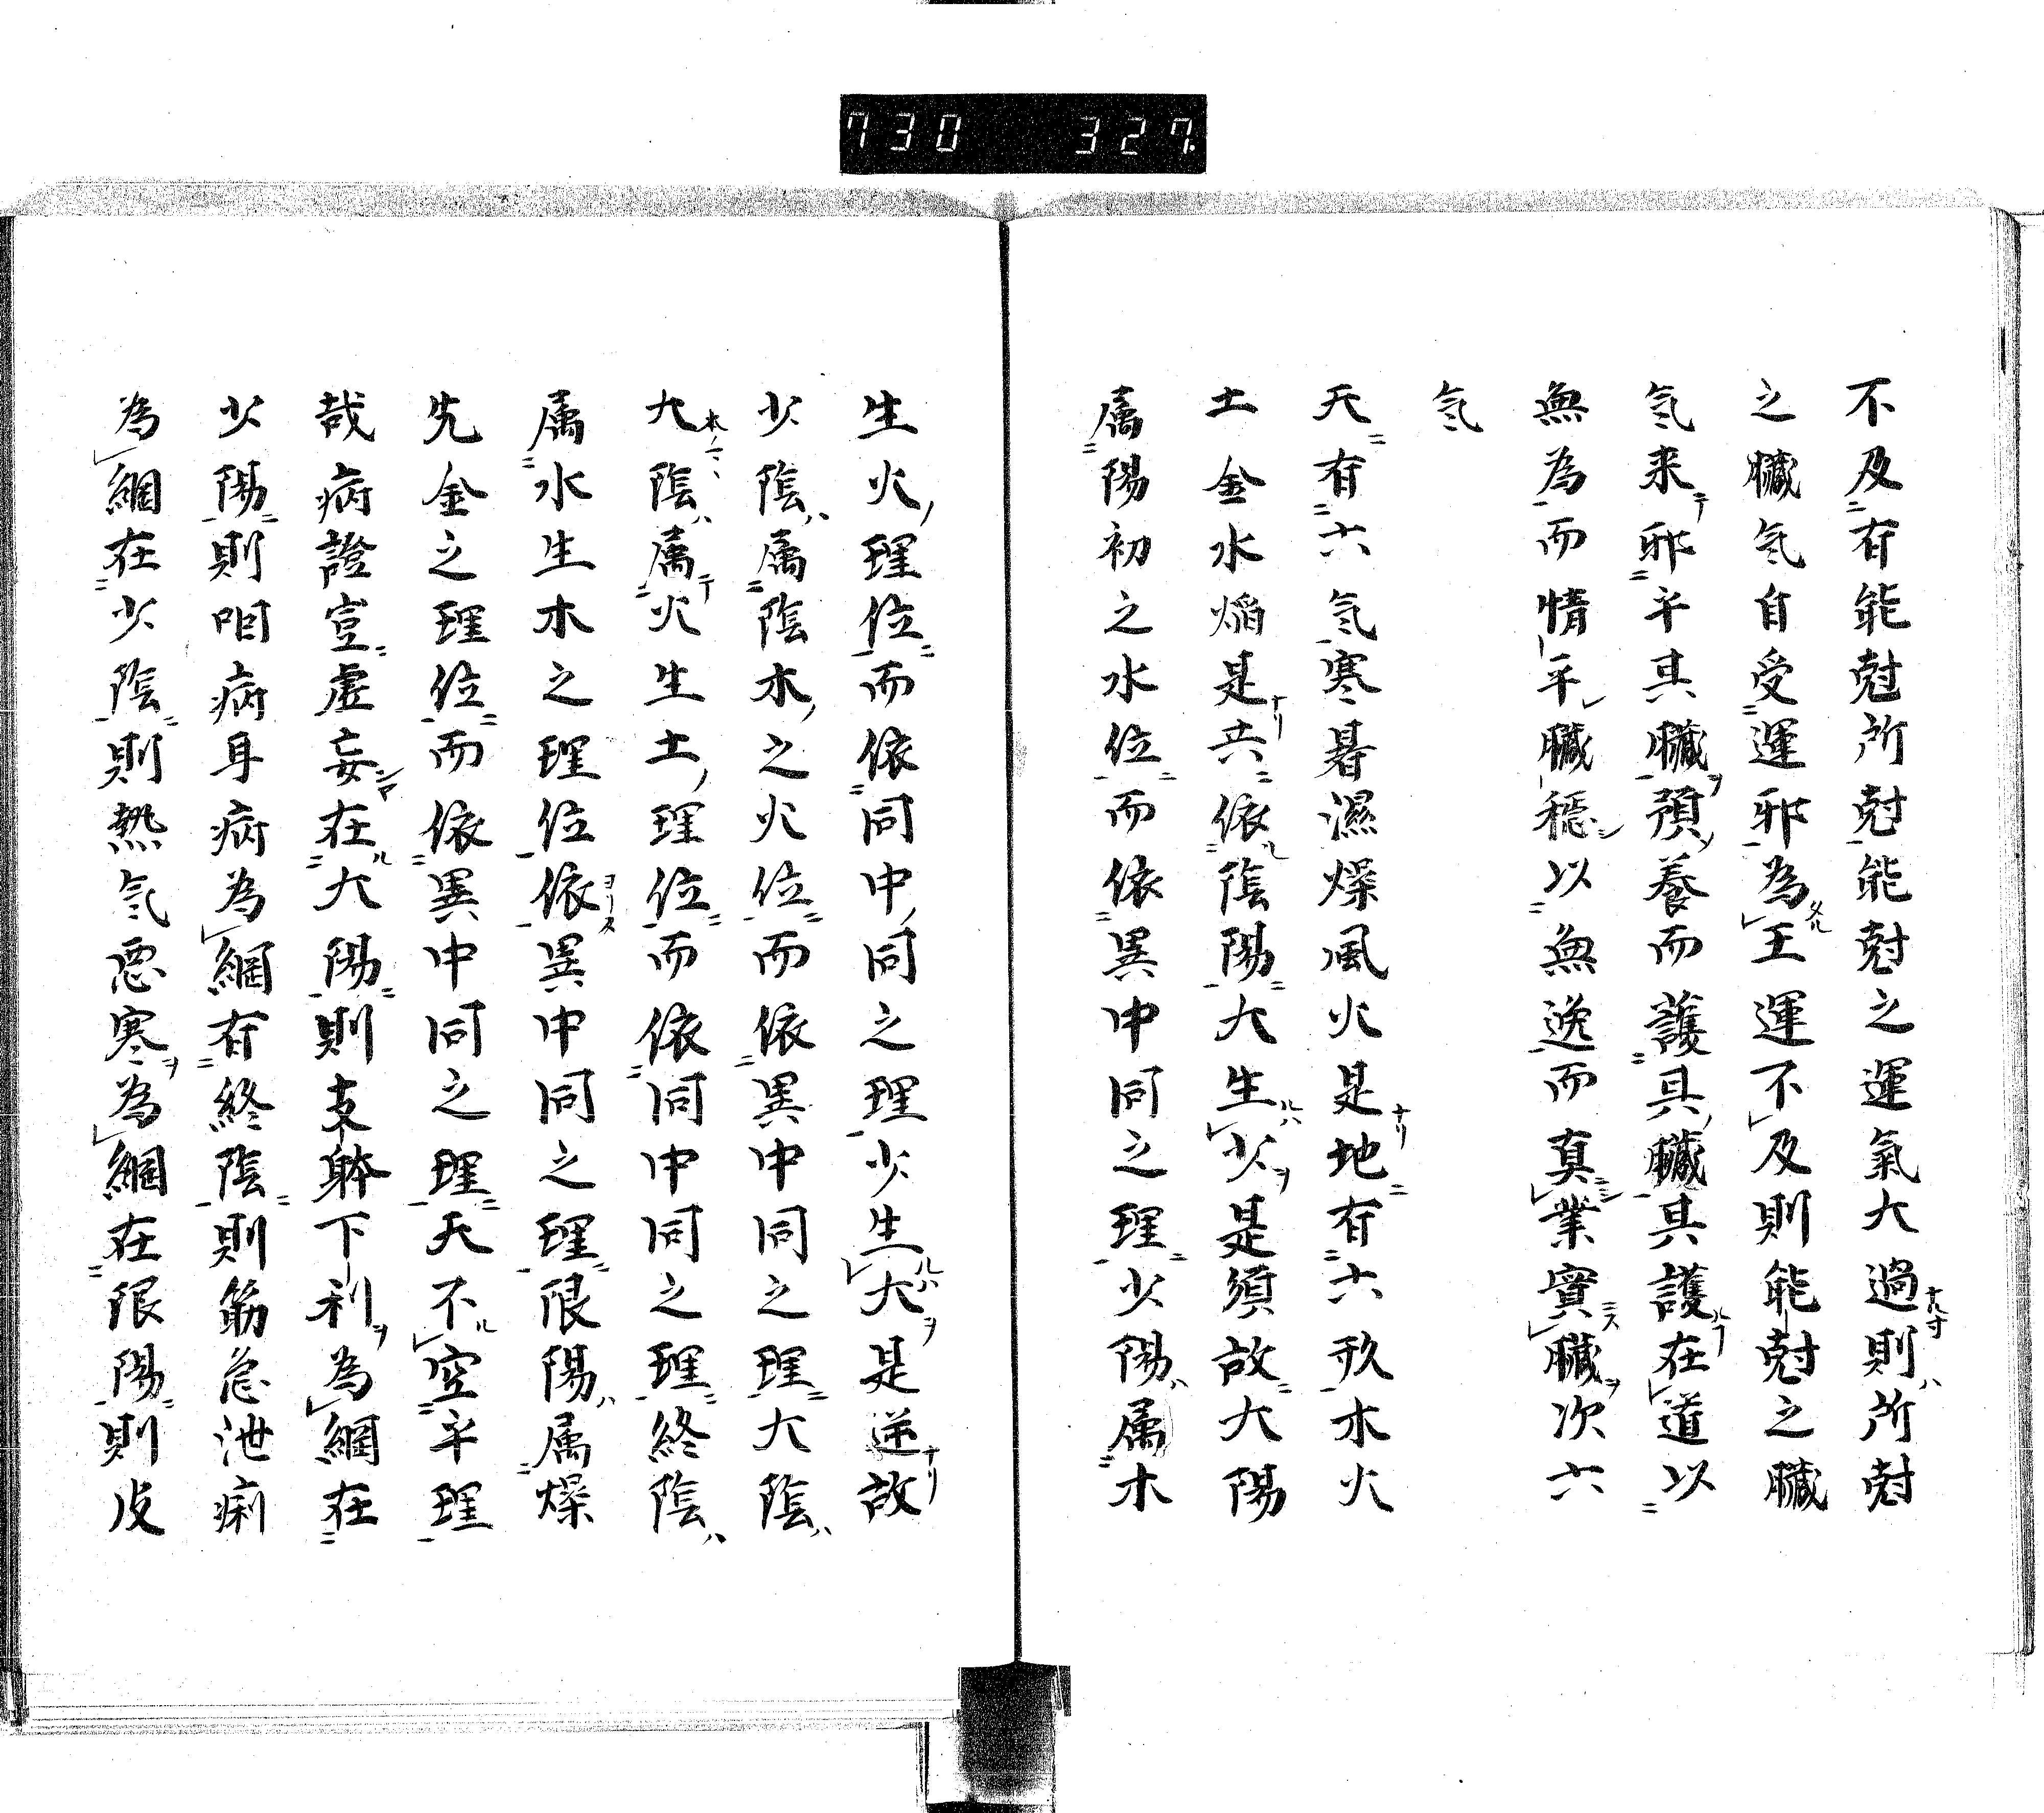 730 327
不及有能尅所尅能尅之運氣大過則所尅
之臟气自受運邪為王運不及則能尅之臟
气来邪乎其臟預養而護其臟其護在道以
無為而情平臟穏以無逸而真業實臟次六
气
天有六气寒暑濕燥風火是地有六㱏木火
土金水焰是共依陰陽大生少是須故大陽
属陽初之水位而依異中同之理少陽属木
生火理位而依同中同之理少生大是逆故
少陰属陰木之火位而依異中同之理大陰
大陰属火生土理位而依同中同之理終陰
属水生木之理位依異中同之理限陽属燥
先金之理位而依異中同之理天不空乎理
哉病證豈虚妄在大陽則支躰下利為綱在
少陽則咽病耳病為綱有終陰則筋急泄痢
為綱在少陰則熱气悪寒為綱在限陽則皮